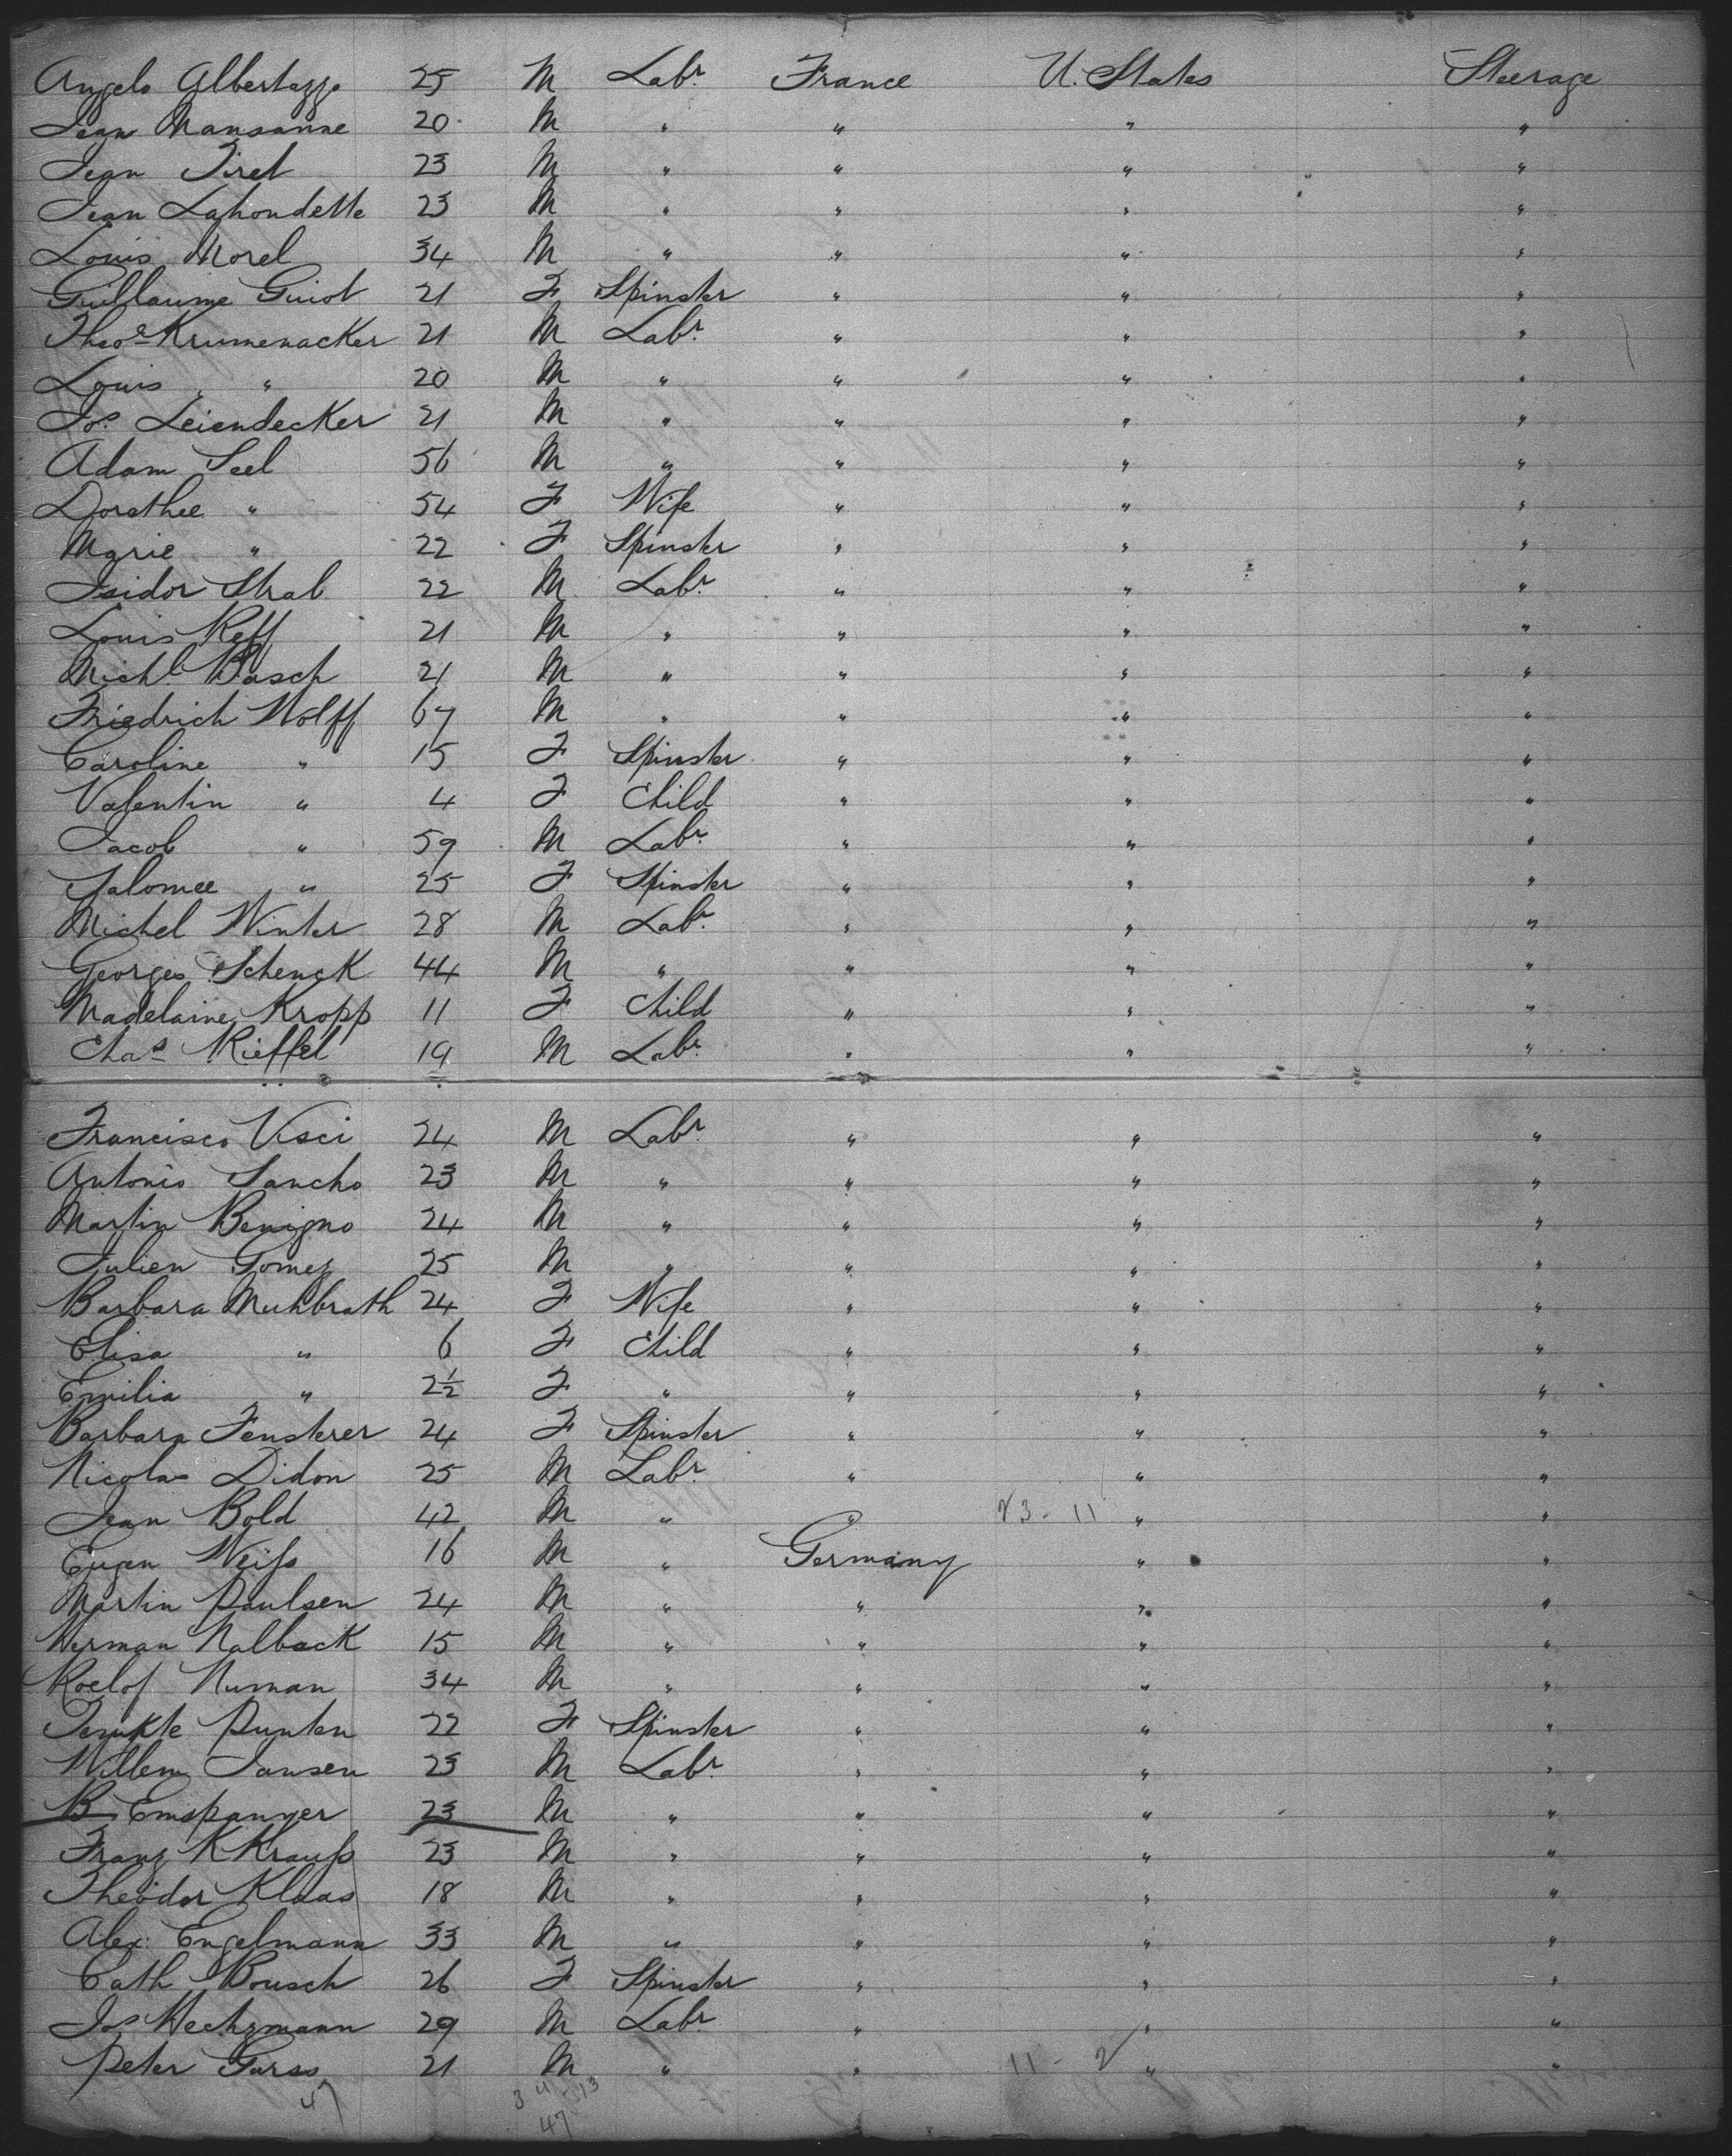 Angelo Albertazzo 25 M Labr. France U. States Steerage
Jean Mansanne 20 M " " " "
Jean Tiret 23 M " " " "
Jean Lahondette 23 M " " " "
Louis Morel 34 M " " " "
Guillaume Guiot 21 F Spinster " " "
Theoe Krumenacker 21 M Labr. " " "
Louis " 20 M " " " "
Jos. Leiendecker 21 M " " " "
Adam Seel 56 M " " " "
Dorothee " 54 F Wife " " "
Marie " 22 F Spinster " " "
Isidor Strab 22 M Labr. " " "
Louis Reff 21 M " " " "
Michl. Basch 21 M " " " "
Friedrich Wolff 67 M " " " "
Caroline " 15 F Spinster " " "
Valentin " 4 F Child " " "
Jacob " 59 M Labr. " " "
Salomee " 25 F Spinster " " "
Michel Winter 28 M Labr. " " "
Georges Schenck 44 M " " " "
Madelaine Kropp 11 F Child " " "
Chas Rieffel 19 M Labr. " " "
Francisco Visci 24 M Labr. " " "
Antonio Sancho 23 M " " " "
Martin Benigno 24 M " " " "
Julien Gomez 25 M " " " "
Barbara Muhbrath 24 F Wife " " "
Elisa " 6 F Child " " "
Emilia " 2½ F " " " "
Barbara Fensterer 24 F Spinster " " "
Nicolas Didon 25 M Labr. " " "
Jean Bold 42 M " " 23 - 11 " "
Eugen Weiſs 16 M " Germany " "
Martin Paulsen 24 M " " " "
Herman Nalback 15 M " " " "
Roelof Numan 34 M " " " "
Punten 22 F Spinster " " "
Willem Jansen 23 M Labr. " " "
B Emspanyer 23 M " " " "
Franz K Krauſs 23 M " " " "
Theodor Klaas 18 M " " " "
Alex. Engelmann 33 M " " " "
Cath Bousch 26 F Spinster " " "
Jos Hechzmann 29 M Labr. " " "
Peter Gurss 21 M " " 11 - 2 " "
47 34 13
47